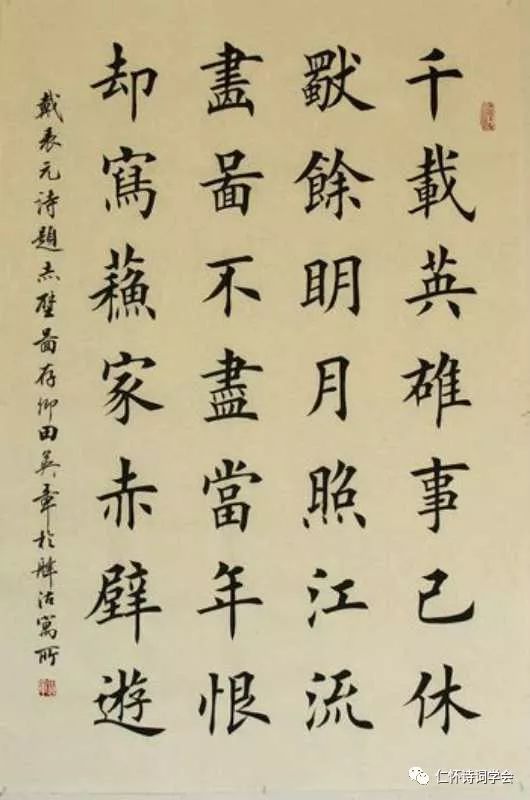 千載英雄事已休
獨餘眀月照江流
畫啚不盡當年恨
却寫蘓家赤壁遊
戴表元詩題赤壁啚存卿田英章於津沽寓所
仁怀诗词学会